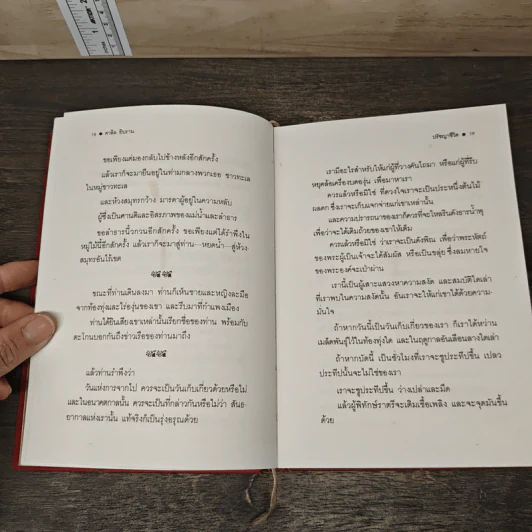 18 ● คาลิล ยิบราน
ขอเพียงแต่มองกลับไปข้างหลังอีกสักครั้ง
แล้วเราก็จะมายืนอยู่ในท่ามกลางพวกเธอ ชาวทะเล
ในหมู่ชาวทะเล
และห้วงสมุทรกว้าง มารดาผู้อยู่ในความหลับ
ผู้ซึ่งเป็นศานติและอิสรภาพของแม่น้ำและลำธาร
ขอลำธารนี้วกวนอีกสักครั้ง ขอเพียงแต่ได้รำพึงใน
หมู่ไม้นี้อีกสักครั้ง แล้วเราก็จะมาสู่ท่าน—หยดน้ำ—สู่ห้วง-
สมุทรอันไร้เขต
ขณะที่ท่านเดินลงมา ท่านก็เห็นชายและหญิงละมือ
จากท้องทุ่งและไร่องุ่นของเขา และรีบมาที่กำแพงเมือง
ท่านได้ยินเสียงเขาเหล่านั้นเรียกชื่อของท่าน พร้อมกับ
ตะโกนบอกกันถึงข่าวเรือของท่านมาถึง
แล้วท่านรำพึงว่า
วันแห่งการจากไป ควรจะเป็นวันเก็บเกี่ยวด้วยหรือไม่
และในอนาคตกาลนั้น ควรจะเป็นที่กล่าวกันหรือไม่ว่า สันธ-
ยากาลแห่งเรานั้น แท้จริงก็เป็นรุ่งอรุณด้วย
ปรัชญาชีวิต ● 19
เรามีอะไรสำหรับให้แก่ผู้ที่วางคันไถมา หรือแก่ผู้ที่รีบ
หยุดล้อเครื่องบดองุ่น เพื่อมาหาเรา
ควรแล้วหรือมิใช่ ที่ดวงใจเราจะเป็นประหนึ่งต้นไม้
ผลดก ซึ่งเราจะเก็บแจกจ่ายแก่เขาเหล่านั้น
และความปรารถนาของเราก็ควรที่จะไหลรินดังธารน้ำพุ
เพื่อว่าจะได้เติมถ้วยของเขาให้เต็ม
ควรแล้วหรือมิใช่ ว่าเราจะเป็นดังพิณ เพื่อว่าพระหัตถ์
ของพระผู้เป็นเจ้าจะได้สัมผัส หรือเป็นขลุ่ย ซึ่งลมหายใจ
ของพระองค์จะเป่าผ่าน
เรานี้เป็นผู้เสาะแสวงหาความสงัด และสมบัติใดเล่า
ที่เราพบในความสงัดนั้น อันเราจะให้แก่เขาได้ด้วยความ-
มั่นใจ
ถ้าหากวันนี้เป็นวันเก็บเกี่ยวของเรา ก็เราได้หว่าน
เมล็ดพันธุ์ไว้ในท้องทุ่งใด และในฤดูกาลอันเลือนลางใดเล่า
ถ้าหากบัดนี้ เป็นชั่วโมงที่เราจะชูประทีปขึ้น เปลว
ประทีปนั้นจะไม่ใช่ของเรา
เราจะชูประทีปขึ้น ว่างเปล่าและมืด
แล้วผู้พิทักษ์ราตรีจะเติมเชื้อเพลิง และจะจุดมันขึ้น
ด้วย